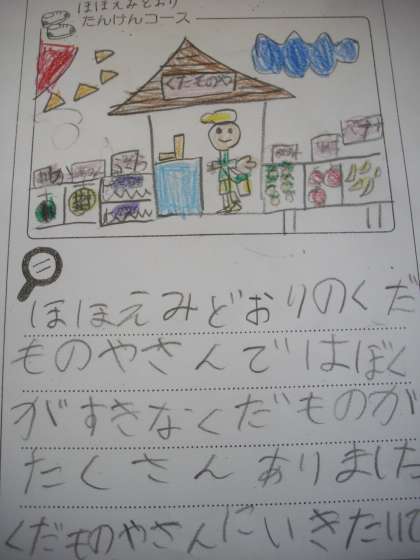 ほほえみどおり
たんけんコース
くだものや
ほほえみどおりのくだ
ものやさんではぼく
がすきなくだものが
たくさんありました
くだものやさんにいきたいで